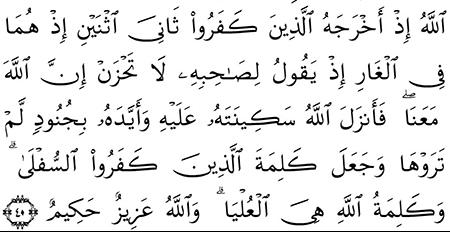 ٱللَّهُ إِذْ أَخْرَجَهُ ٱلَّذِينَ كَفَرُوا۟ ثَانِىَ ٱثْنَيْنِ إِذْ هُمَا
فِى ٱلْغَارِ إِذْ يَقُولُ لِصَـٰحِبِهِۦ لَا تَحْزَنْ إِنَّ ٱللَّهَ
مَعَنَا ۖ فَأَنزَلَ ٱللَّهُ سَكِينَتَهُۥ عَلَيْهِ وَأَيَّدَهُۥ بِجُنُودٍ لَّمْ
تَرَوْهَا وَجَعَلَ كَلِمَةَ ٱلَّذِينَ كَفَرُوا۟ ٱلسُّفْلَىٰ ۗ
وَكَلِمَةُ ٱللَّهِ هِىَ ٱلْعُلْيَا ۗ وَٱللَّهُ عَزِيزٌ حَكِيمٌ ٤٠